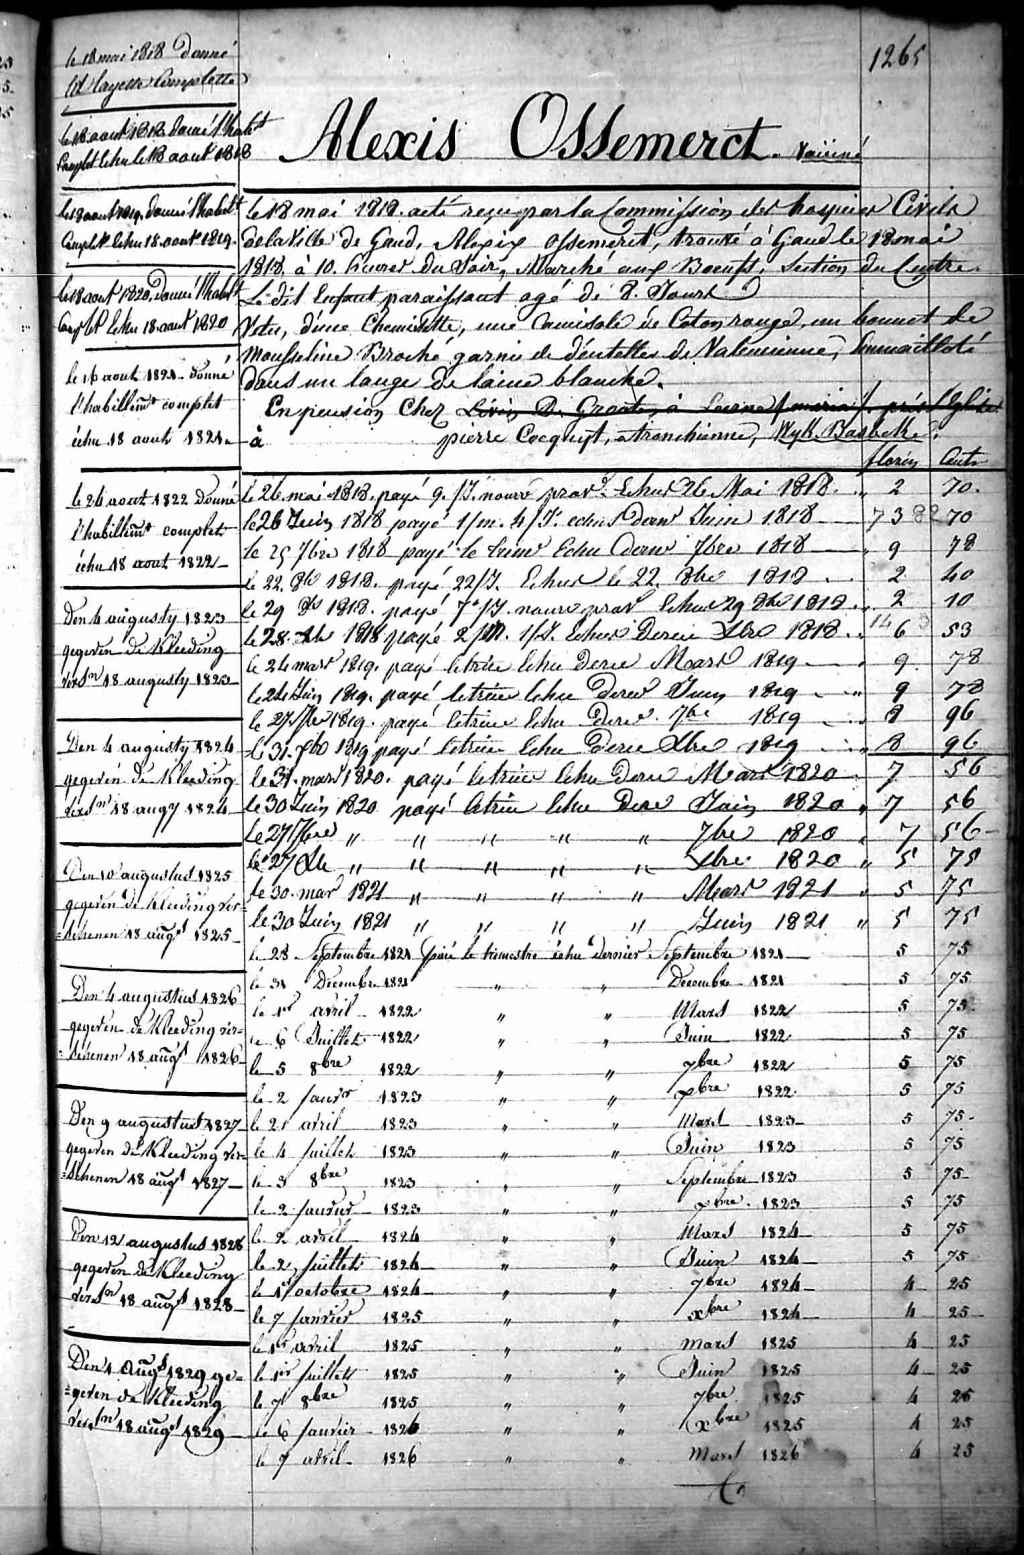 1265
Alexis Ossemerct. Vacciné
le 18 mai 1818 Donné
la layette Complette
le 18 aout 1818 donné l'habt
Complet Echu le 18 aout 1818
le 18 aout 1819 donné l'habt
Complet Echu 18 aout 1819.
le 18 aout 1820 Donné l'habt
Complt Echu 18 aout 1820
le 16 aout 1821 donné
l'habillemt complet
échu 18 aout 1821
le 26 aout 1822 Donné
l'habillemt complet
échu 18 aout 1822
Den 4 augusty 1823
gegeven de Kleeding
versn 18 augusty 1823
Den 4 augusty 1824
gegeven de Kleeding
versn 18 augy 1824
Den 10 augustus 1825
gegeven de Kleeding ver=
=schenen 18 augt 1825
Den 4 augustus 1826
gegeven de Kleeding ver=
=schenen 18 augt 1826
Den 9 augustus 1827
gegeven de Kleeding ver=
=schenen 18 augt 1827
Den 12 augustus 1828
gegeven de Kleeding
versn 18 augt 1828
Den 4 augt 1829 ge=
=geven de Kleeding
versn 18 augt 1829
le 18 mai 1818. a été reçu par la Commission des hospices Civils
de la Ville de Gand, Alexix Ossemerct, trouvé à Gand le 18 mai
1818 à 10. heures du Soir, Marché aux Boeufs, Section du Centre.
Le dit Enfant paraissant agé de 8. Jours
Vetu, d'une Chemisette, une Camisole de Coton rouge, un bonnet de
Mousseline Broché garni de dentelles de Valencienne, Emmailloté
dans un lange de laine blanche.
En pension Chez
à pierre Cocquyt, a tronchienne, Wyk. Basbeke.
florins Cents
le 26. mai 1818. payé 9./J. nourr. provre. Echus 26 Mai 1818. " 2 70.
le 26 Juin 1818 payé 1/m. 4/J. echus dernr Juin 1818 7 3 82 70
le 25 7bre 1818 payé le trimr Echu dernr 7bre 1818 " 9 78
le 22. 8be 1818. payé 22/J. Echus le 22. 8bre 1818 " 2 40
le 29 8be 1818. payé 7/J. nourr provr Echus 29 8bre 1818 " 2 10
le 28. Xbe 1818 payé 2/m. 1/J. Echus Dernr Xbre 1818 " 6 53
le 24 mars 1819. payé letrim Echu Dernr Mars 1819 " 9 78
le 24 Juin 1819. payé letrim Echu Dernr Juin 1819 " 9 78
le 27 7bre 1819. payé letrim Echu Dernr 7bre 1819 " 8 96
le 31. Xbre 1819 payé letrim Echu Dernr Xbre 1819 " 8 96
le 31. mars 1820. payé letrim Echu Dernr Mars 1820 " 7 56
le 30 Juin 1820 payé letrim Echu Dernr Juin 1820 " 7 56
le 27 7bre " " " " " 7bre 1820 " 7 56
le 27 Xbre " " " " " Xbre 1820 " 5 75
le 30. mars 1821 " " " " " Mars 1821 " 5 75
le 30 Juin 1821 " " " " " Juin 1821 " 5 75
le 28 Septembre 1821 payé le trimestre échu dernier Septembre 1821 5 75
le 31 Décembre 1821 " " Decembre 1821 5 75
le 1r avril 1822 " " Mars 1822 5 75
le 6 Juillet 1822 " " Juin 1822 5 75
le 5 8bre 1822 " " 7bre 1822 5 75
le 2 Janvr 1823 " " xbre 1822 5 75
le 21 avril 1823 " " Mars 1823 5 75
le 4 Juillet 1823 " " Juin 1823 5 75
le 3 8bre 1823 " " Septembre 1823 5 75
le 2 Janvier 1823 " " xbre 1823 5 75
le 2 avril 1824 " " Mars 1824 5 75
le 2 Juillet 1824 " " Juin 1824 5 75
le 1r octobre 1824 " " 7bre 1824 4 25
le 7 Janvier 1825 " " xbre 1824 4 25
le 1r avril 1825 " " mars 1825 4 25
le 1er Juillet 1825 " " Juin 1825 4 25
le 7 8bre 1825 " " 7bre 1825 4 25
le 6 Janvier 1826 " " xbre 1825 4 25
le 7 avril 1826 " " Mars 1826 4 25